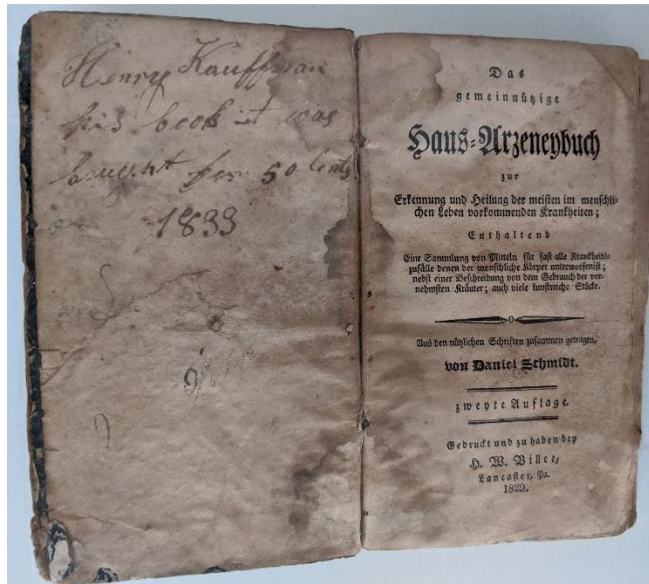 Henry Kauffman
his book it was
bought for 50 Cents
1833
Das
gemeinnützige
Haus-Arzeneybuch
zur
Erkennung und Heilung der meisten im menschli-
chen Leben vorkommenden Krankheiten;
Enthaltend
Eine Sammlung von Mitteln für fast alle Krankheits-
zufälle denen der menschliche Körper unterworfen ist;
nebst einer Beschreibung von dem Gebrauch der vor-
nehmsten Kräuter; auch viele kunstreiche Stücke.
Aus den nützlichen Schriften zusammen getragen,
von Daniel Schmidt.
zweyte Auflage.
Gedruckt und zu haben bey
H. W. Villee,
Lancaster, Pa.
1829.